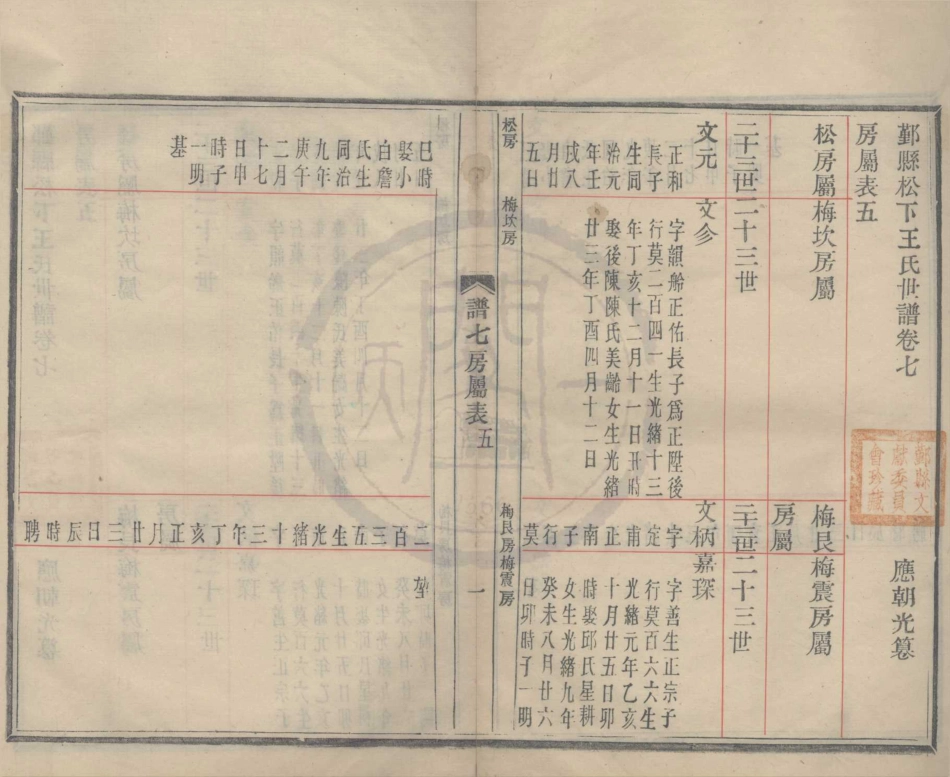 鄞縣松下王氏世譜卷七
應朝光篹
房屬表五
松房屬梅坎房屬
梅艮梅震房屬
二十三世二十三世
二十三世二十三世
文元
正和
長子
生同
治元
年壬
戌八
月廿
五日
巳時
娶小
白詹
氏生
同治
九年
庚午
二月
十七
日申
時子
一明
基
文㐱
字韻船正佑長子爲正陞後
行莫二百四一生光緒十三
年丁亥十二月十一日丑時
娶後陳陳氏美齡女生光緒
廿三年丁酉四月十二日
文炳
字
定
甫
正
南
子
行
莫
二百三五生光緒十三年丁亥正月廿三日辰時聘
嘉琛
字善生正宗子
行莫百六六生
光緒元年乙亥
十月廿五日卯
時娶邱氏星耕
女生光緒九年
癸未八月廿六
日卯時子一明
堃
松房
梅坎房
梅艮房梅震房
譜七房屬表五
一
鄞縣文
獻委員
會珍藏